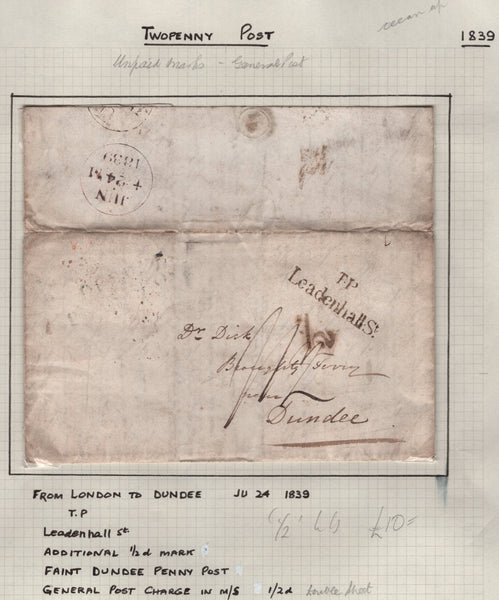 TWOPENNY POST
1839
Unpaid marks - General Post
JUN
24
1839
T.P
Leadenhall St.
1/2
Dr. Dick
Broughty Ferry
near
Dundee
FROM LONDON TO DUNDEE JU 24 1839
T.P
Leadenhall St.
ADDITIONAL 1/2d MARK
FAINT DUNDEE PENNY POST
GENERAL POST CHARGE IN M/S 1/2d
£10=